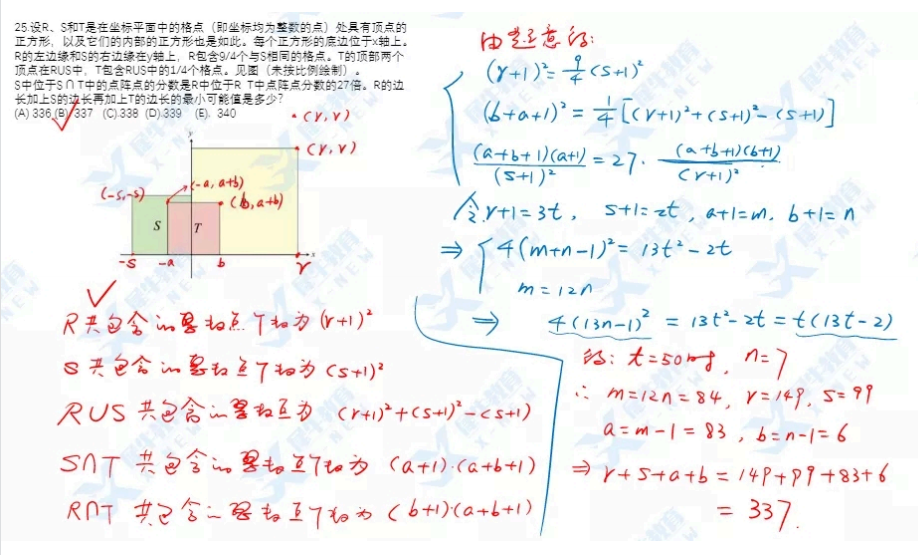 25.设R、S和T是在坐标平面中的格点（即坐标均为整数的点）处具有顶点的
正方形，以及它们的内部的正方形也是如此。每个正方形的底边位于x轴上。
R的左边缘和S的右边缘在y轴上，R包含9/4个与S相同的格点。T的顶部两个
顶点在RUS中，T包含RUS中的1/4个格点。见图（未按比例绘制）。
S中位于S∩T中的点阵点的分数是R中位于R T中点阵点分数的27倍。R的边
长加上S的边长再加上T的边长的最小可能值是多少?
(A) 336 (B) 337 (C).338 (D).339 (E). 340
(r,r)
y
(r,r)
(-s,-s)
(-a, a+b)
(b,a+b)
S
T
x
-s
-a
b
r
R共包含的
为(r+1)²
S共包含的
为(s+1)²
RUS 共包含的
为 (r+1)²+(s+1)²-(s+1)
S∩T 共包含的
为 (a+1)·(a+b+1)
R∩T 共包含的
为 (b+1)(a+b+1)
由题意得:
(r+1)²=9/4(s+1)²
(b+a+1)²=1/4[(r+1)²+(s+1)²-(s+1)]
(a+b+1)(a+1)/(s+1)² = 27· (a+b+1)(b+1)/(r+1)²
令r+1=3t, s+1=2t, a+1=m, b+1=n
⇒ 4(m+n-1)²=13t²-2t
m=12n
⇒ 4(13n-1)²=13t²-2t=t(13t-2)
得: t=50时, n=7
∴ m=12n=84, r=149, s=99
a=m-1=83, b=n-1=6
⇒ r+s+a+b=149+99+83+6
=337.